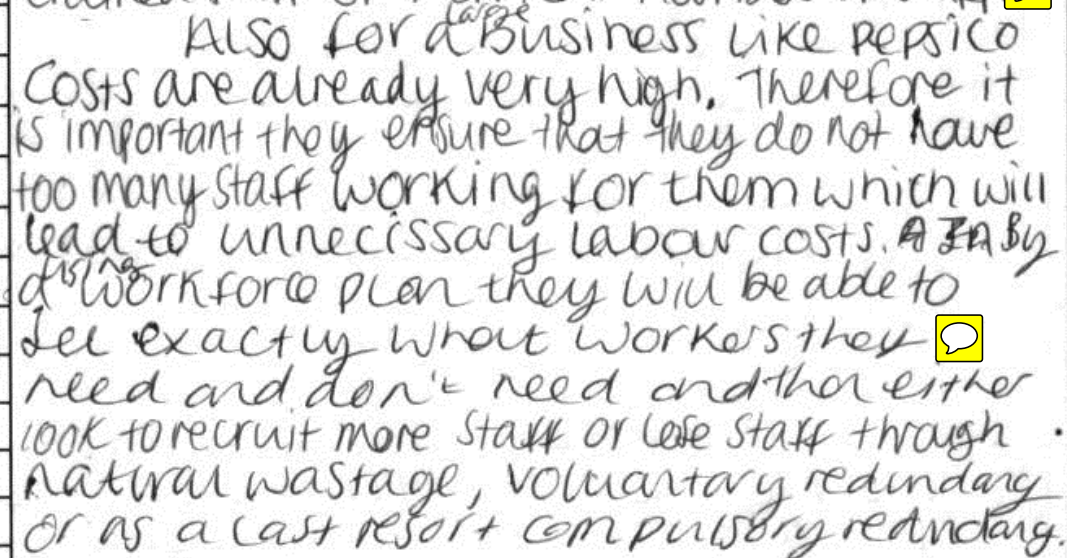 Also for a large Business like pepsico
Costs are already very high. Therefore it
is important they ensure that they do not have
too many staff working for them which will
lead to unnecissary labour costs. By
using a workforce plan they will be able to
see exactly what workers they
need and don't need and then either
look to recruit more staff or lose staff through
natural wastage, voluntary redundancy
or as a last resort compulsory redundancy.